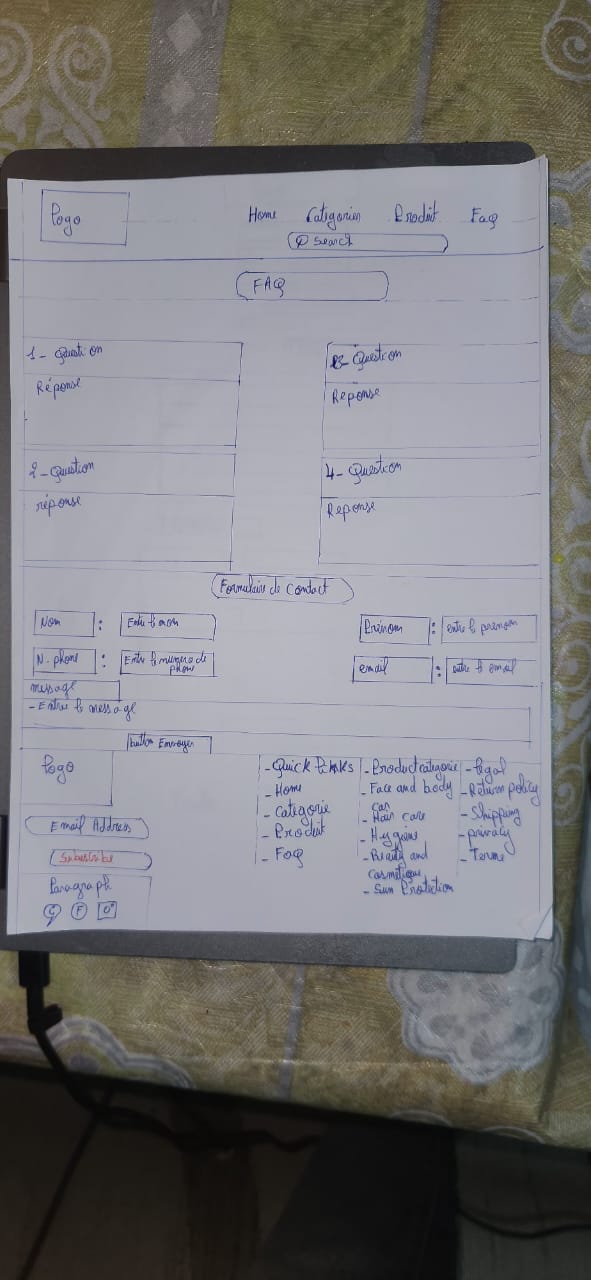 Logo
Home Categories Produit Faq
Search
FAQ
1- Question
Réponse
3- Question
Reponse
2- Question
réponse
4- Question
Reponse
Formulaire de contact
Nom : Entre le nom
Prenom : entre le prenom
N. phone : Entre le numero de phone
email : entre le email
message
- Entrer le message
button Envoyer
Logo
Email Address
Subscribe
Paragraph
F
- Quick Links
- Home
- Categorie
- Produit
- Faq
- Product categorie
- Face and body
car
- Hair care
- Hygiene
- Beauty and
cosmetique
- Sun Protection
- Legal
- Return policy
- Shipping
- privacy
- Terme